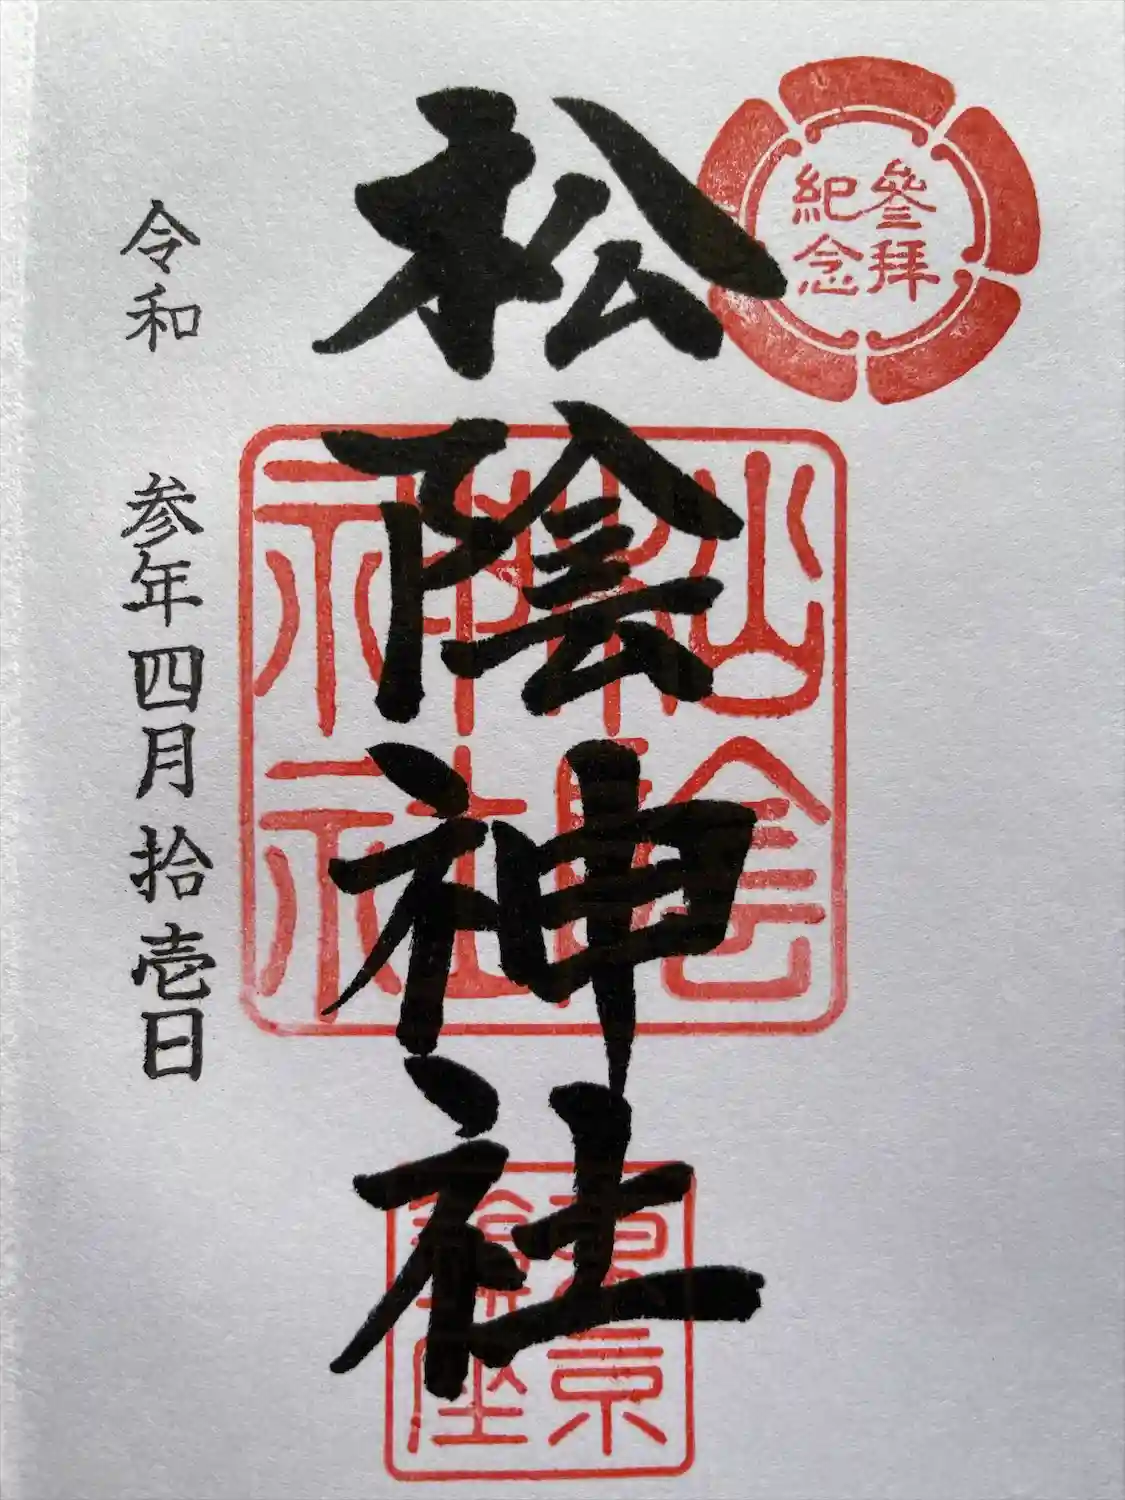 參拜
紀念
松陰神社
松陰
神社
東京
鎮座
令和 参年四月拾壱日